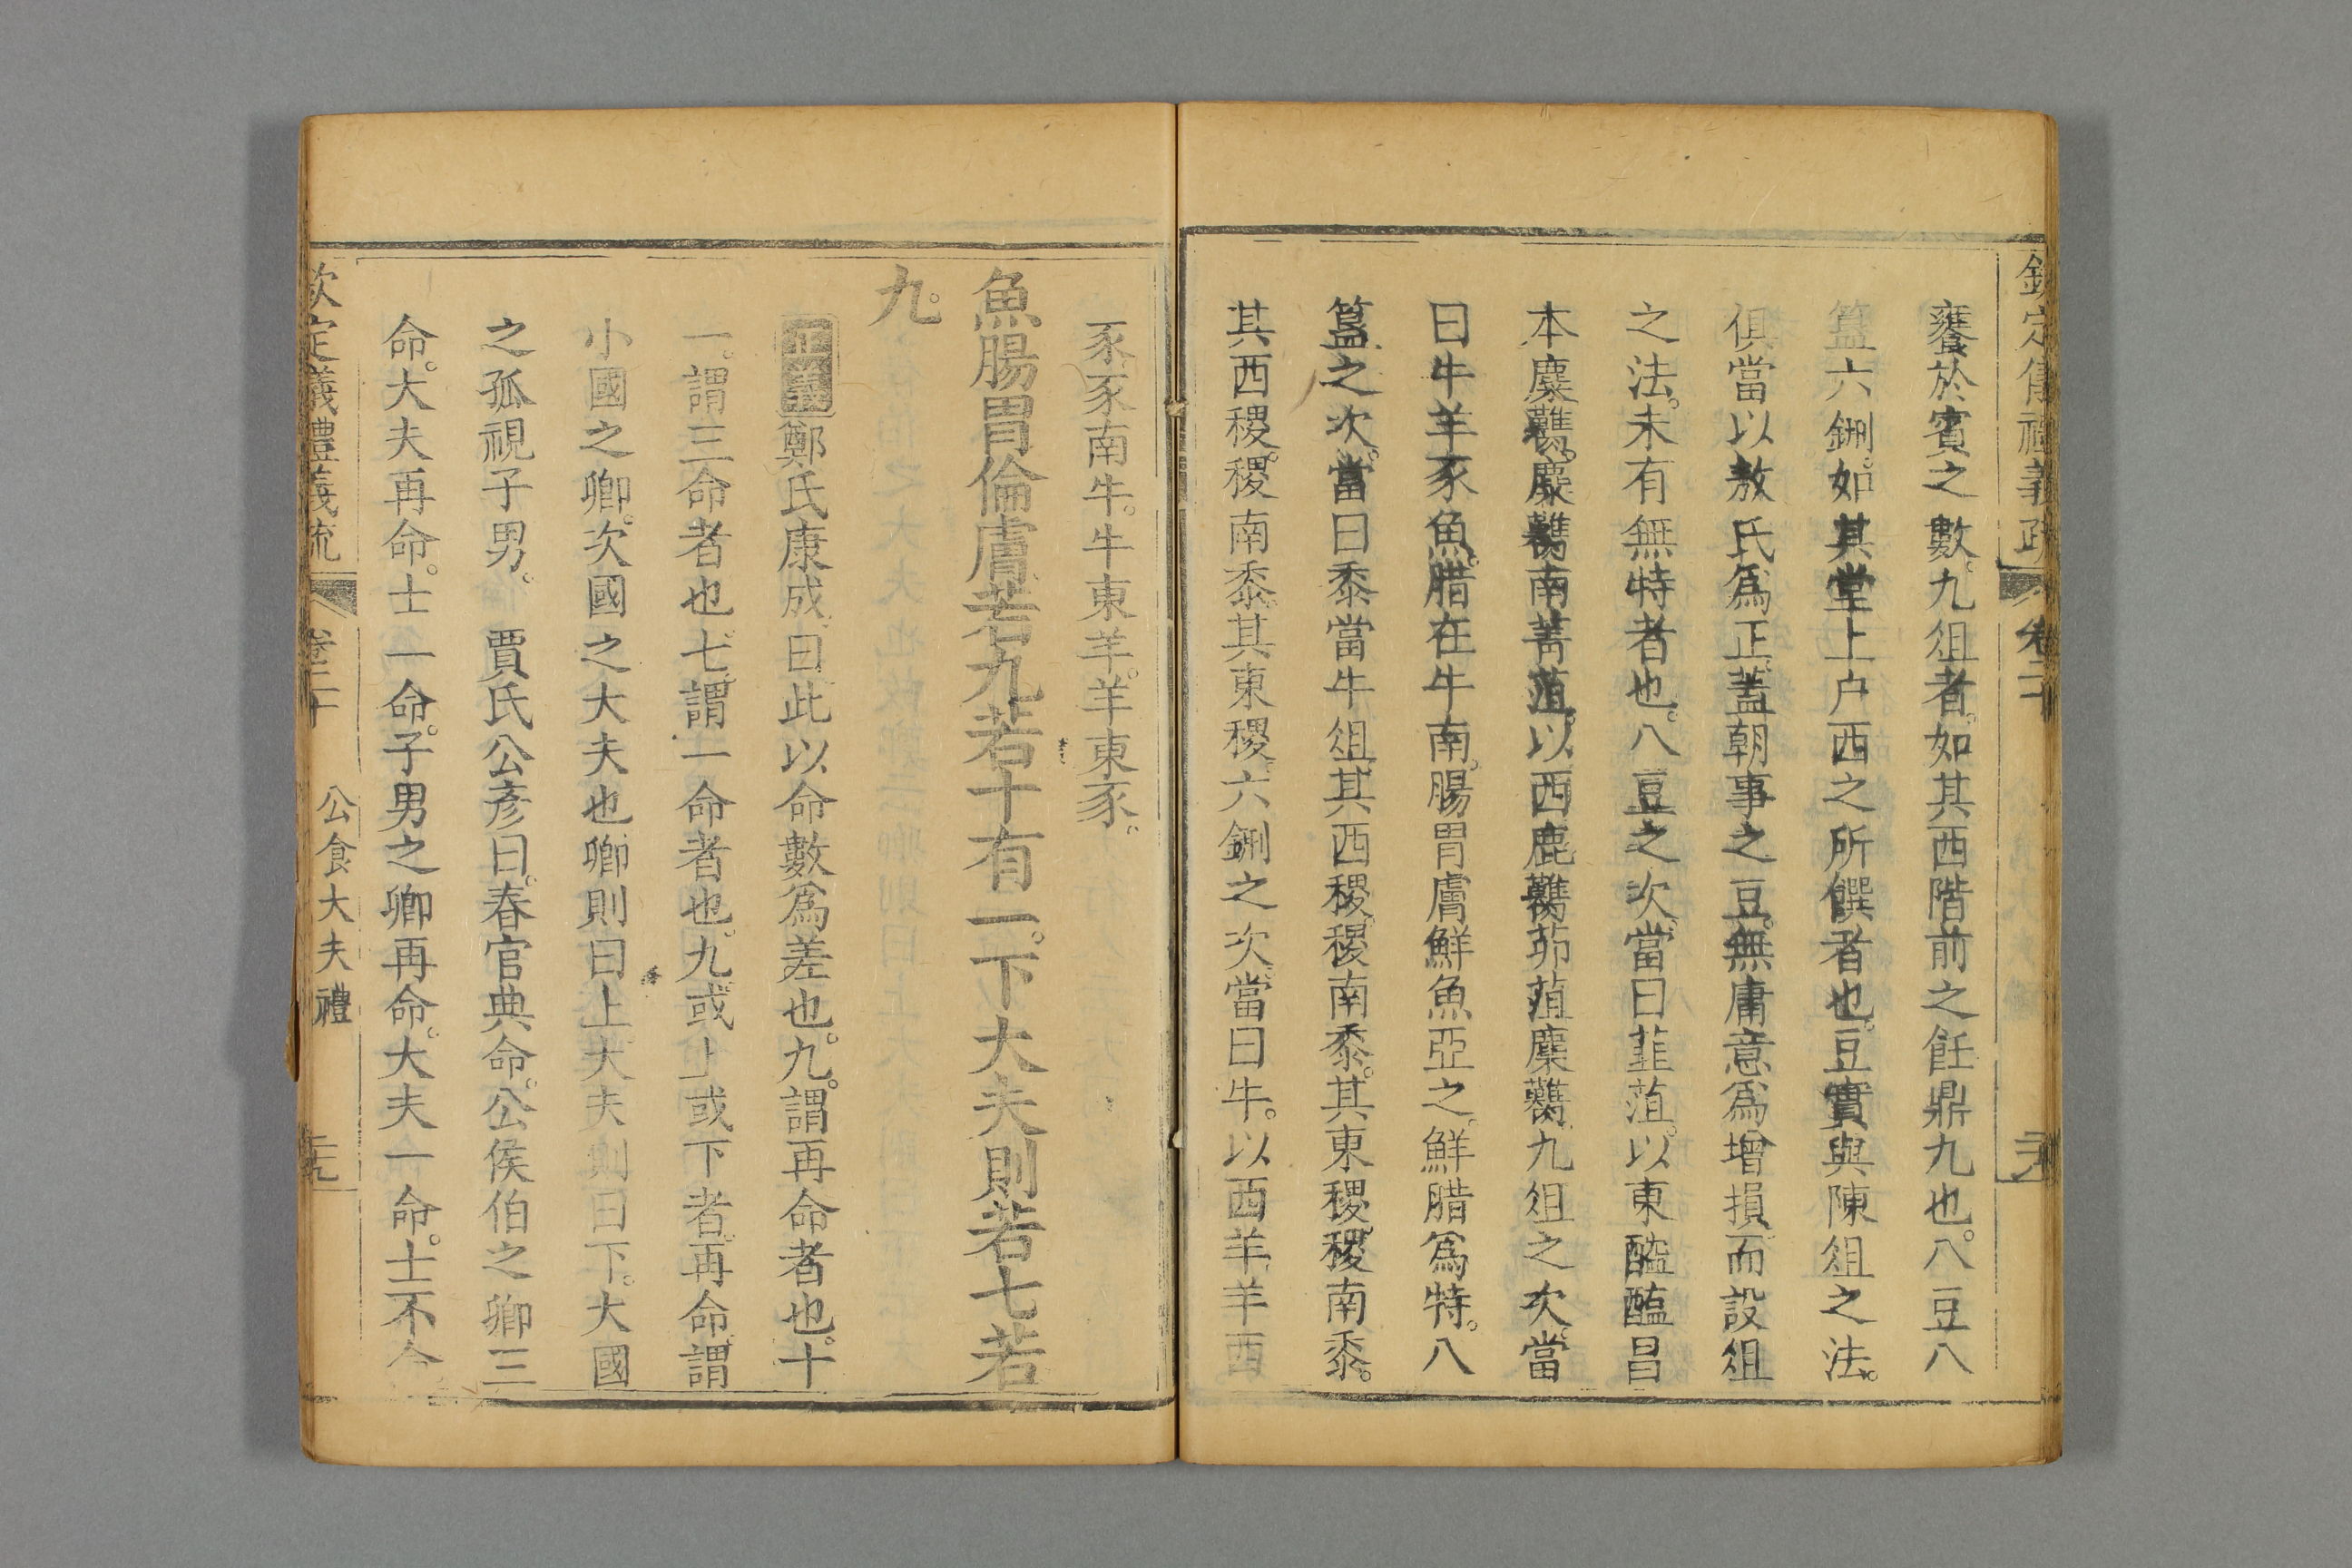 饔於賓之數。九俎者。如其西階前之飪鼎九也。八豆八
簋六鉶。如其堂上户西之所饌者也。豆實與陳俎之法。
俱當以敖氏爲正。蓋朝事之豆。無庸意爲增損。而設俎
之法。未有無特者也。八豆之次。當曰韭菹。以東醓醢昌
本麋臡。麋臡南菁菹。以西鹿臡茆菹麋臡。九俎之次。當
曰牛羊豕魚。腊在牛南。腸胃膚鮮魚亞之。鮮腊爲特。八
簋之次。當曰黍當牛俎。其西稷。稷南黍。其東稷。稷南黍。
其西稷。稷南黍。其東稷。六鉶之次。當曰牛。以西羊。羊西
豕。豕南牛。牛東羊。羊東豕。
魚腸胃倫膚若九若十有一。下大夫則若七若
九。
正義鄭氏康成曰。此以命數爲差也。九。謂再命者也。十
一。謂三命者也。七。謂一命者也。九或上或下者。再命。謂
小國之卿。次國之大夫也。卿則曰上。大夫則曰下。大國
之孤視子男。 賈氏公彥曰。春官典命。公侯伯之卿三
命。大夫再命。士一命。子男之卿再命。大夫一命。士不命
欽定儀禮義疏 卷二十 公食大夫禮